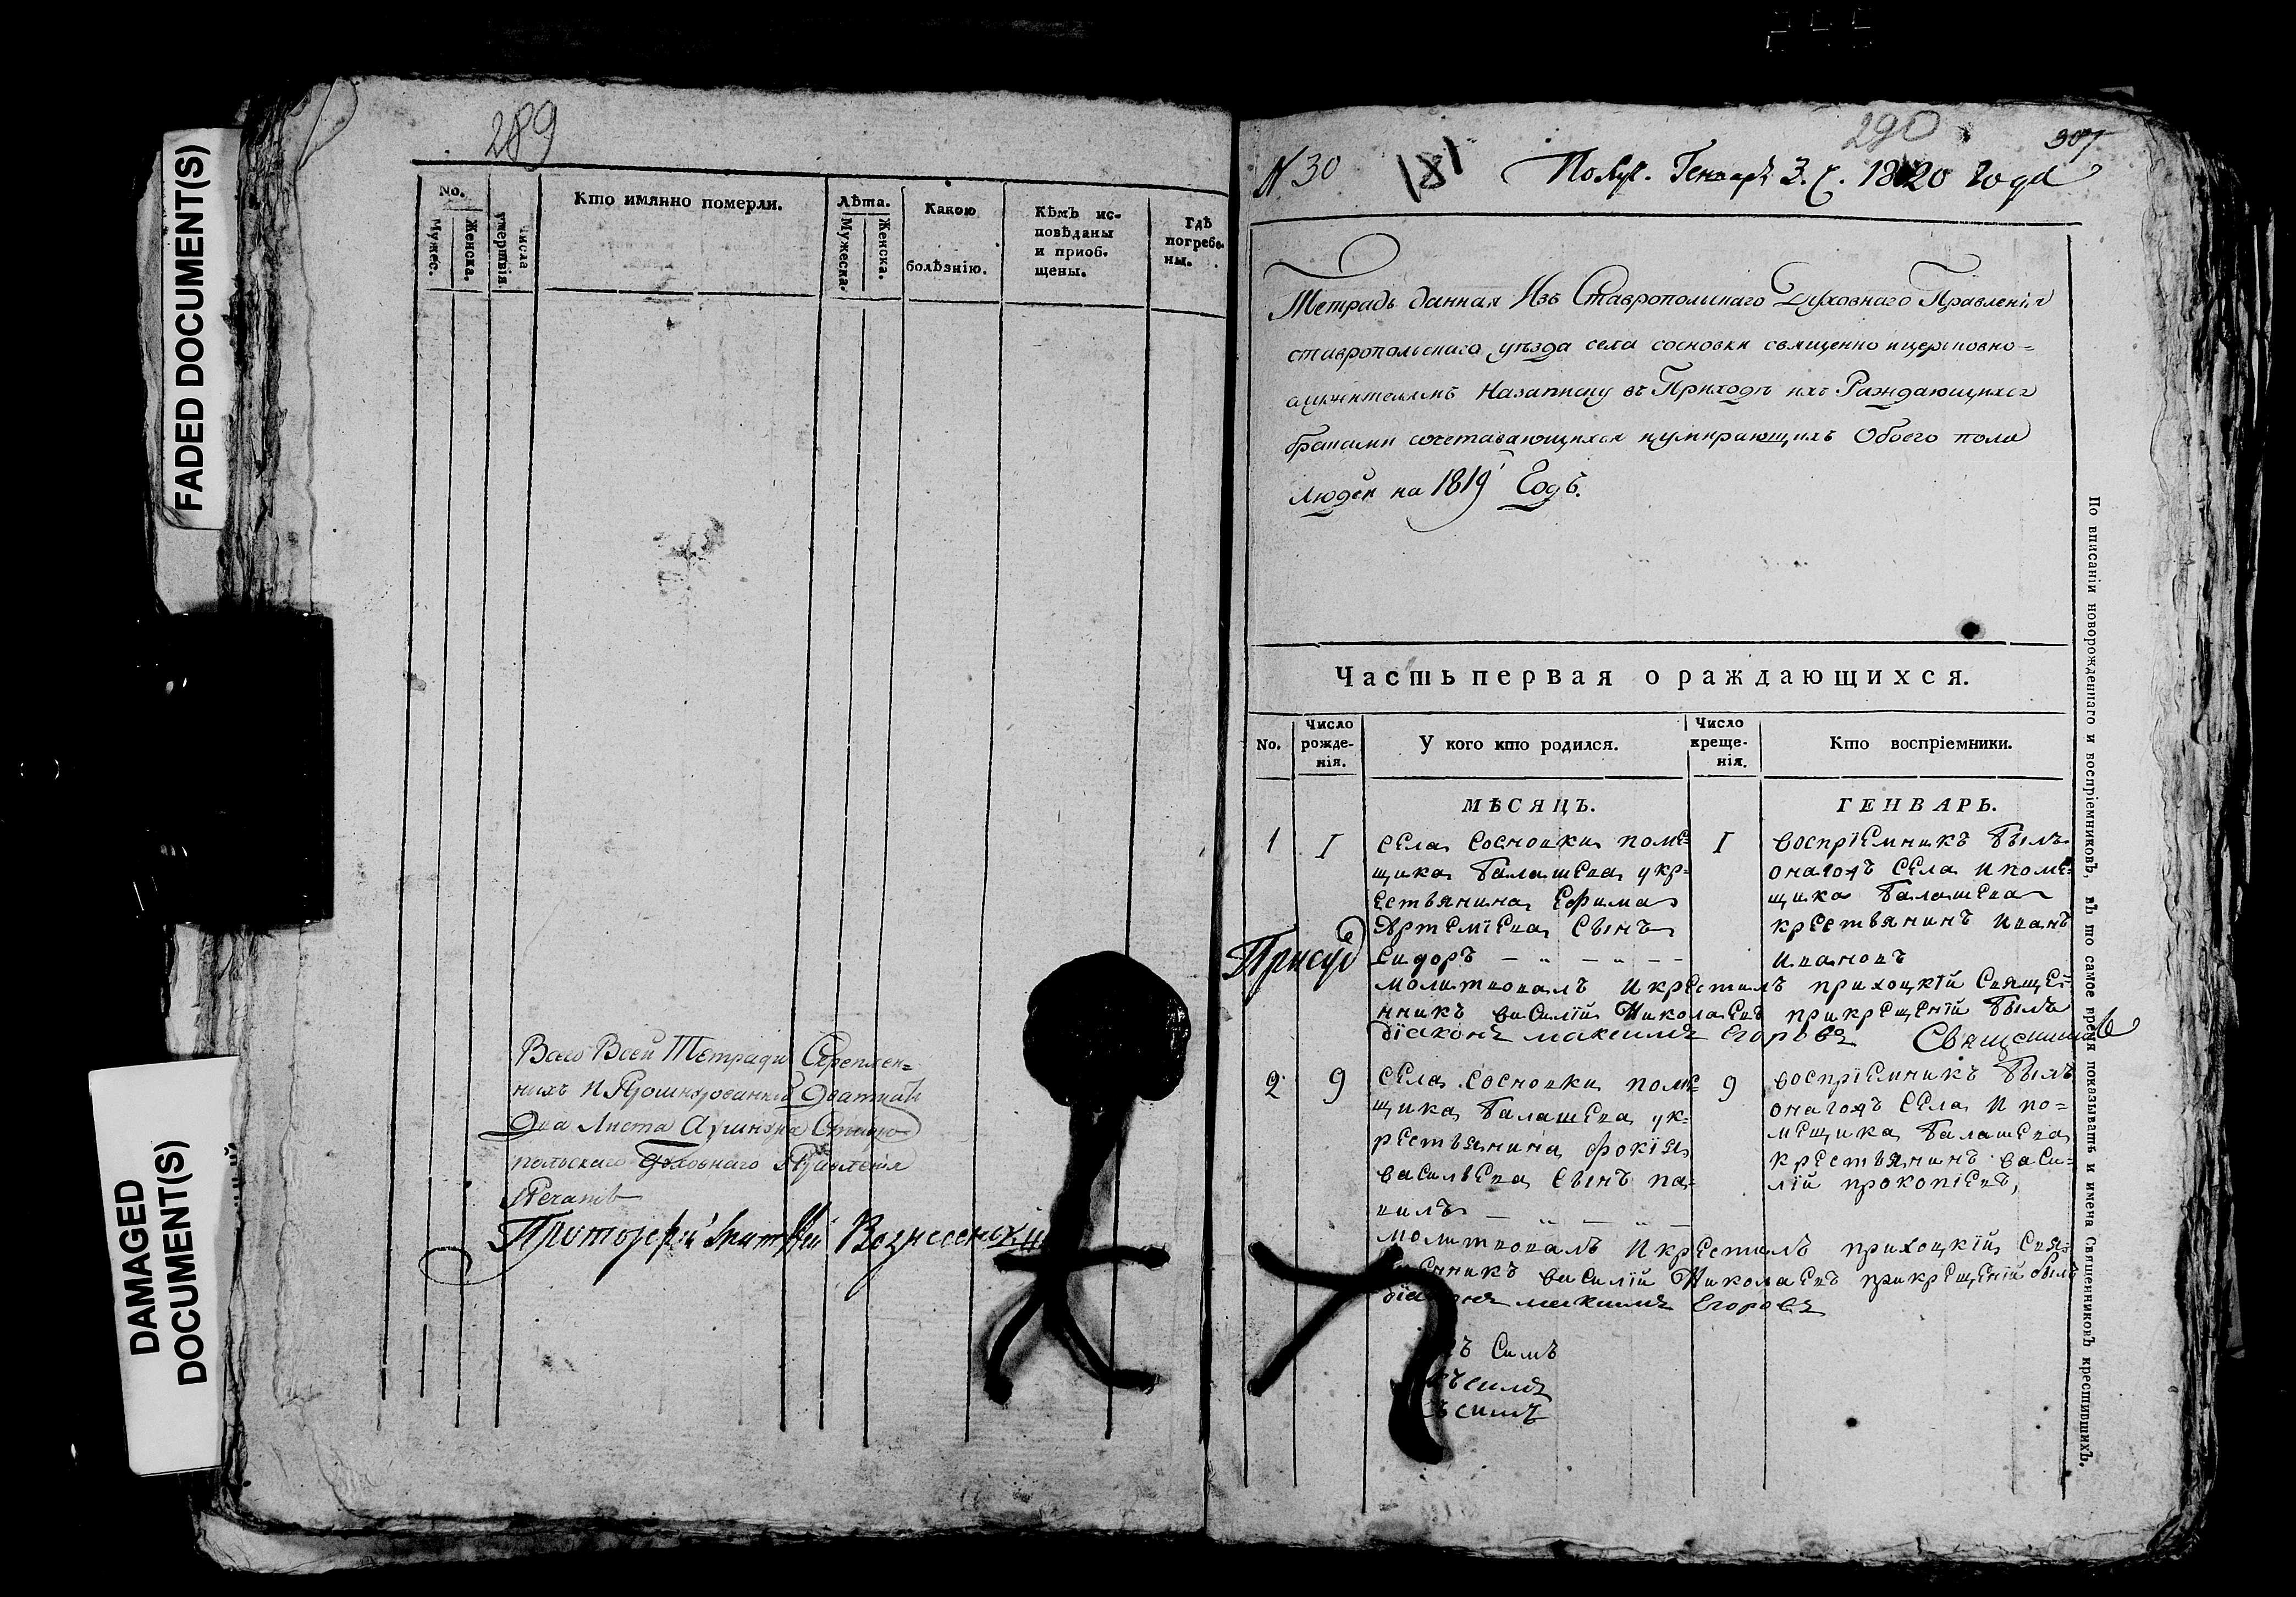 FADED DOCUMENT(S)
DAMAGED
DOCUMENT(S)
289
No.
Мужес.
Женска.
числа
умертвія
Кто имянно померли.
Лѣта.
Мужеска.
Женска.
Какою
болѣзнію.
Кѣмъ ис-
повѣданы
и приоб.
щены.
Гдѣ
погребе-
ны.
Всего Всей Тетради Скреплен-
ныхъ И Прошнурованныхъ Дватцать
Два Листа Ставро-
польскаго Духовнаго Правленія
Печать
Протоіерей Вознесенскій
290
307
N 30
181
Получ. Генваря 3. ч. 1820 года
Тетрадь данная Изъ Ставрополскаго Духовнаго Правленія
ставропольскаго уѣзда села сосновки священно ицерковно-
служителямъ Назаписку въ Приходѣ ихъ Раждающихся
браками сочетавающихся иумирающихъ Обоего пола
людей на 1819 Годъ.
Часть первая о раждающихся.
No.
Число
рожде-
нія.
У кого кто родился.
Число
креще-
нія.
Кто воспріемники.
МѢСЯЦЪ. ГЕНВАРЬ.
1 1 села сосновки поме-
щика балашева укр-
естьянина ефима
артемїева сынъ
сидоръ
1 воспрїемникъ былъ
оногожъ села и поме-
щика балашева
крестьянинъ иванъ
ивановъ
Присуд
молитвовалъ и крестилъ прихоцкїй свяще-
нникъ василїй николаевъ прикрещенїй былъ
дїаконъ максимъ егоровъ Священникъ
2 9 села сосновки поме-
щика балашева ук-
рестьянина фокїя
васильева сынъ па-
вилъ
9 воспрїемникъ былъ
оногожъ села и по-
мещика балашева
крестьянинъ васи-
лїй прокопїевъ,
молитвовалъ и крестилъ прихоцкїй свя-
щенникъ василїй николаевъ прикрещенїй былъ
дїаконъ максимъ егоровъ
ъ симъ
ъ симъ
ъ симъ
По вписаніи новорожденнаго и воспріемниковъ, въ то самое время показывать и имена Священниковъ крестившихъ.